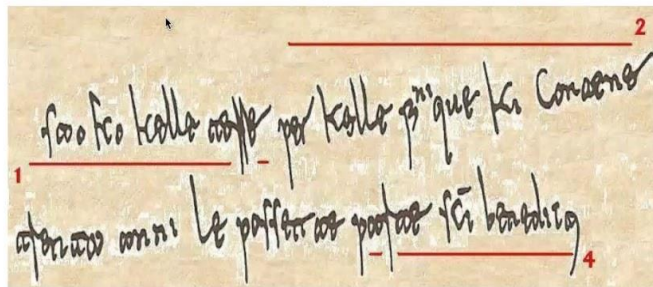 2
sao ko kelle terre per kelle fini que ki contene
1
trenta anni le possette parte sc̄i benedicti
4